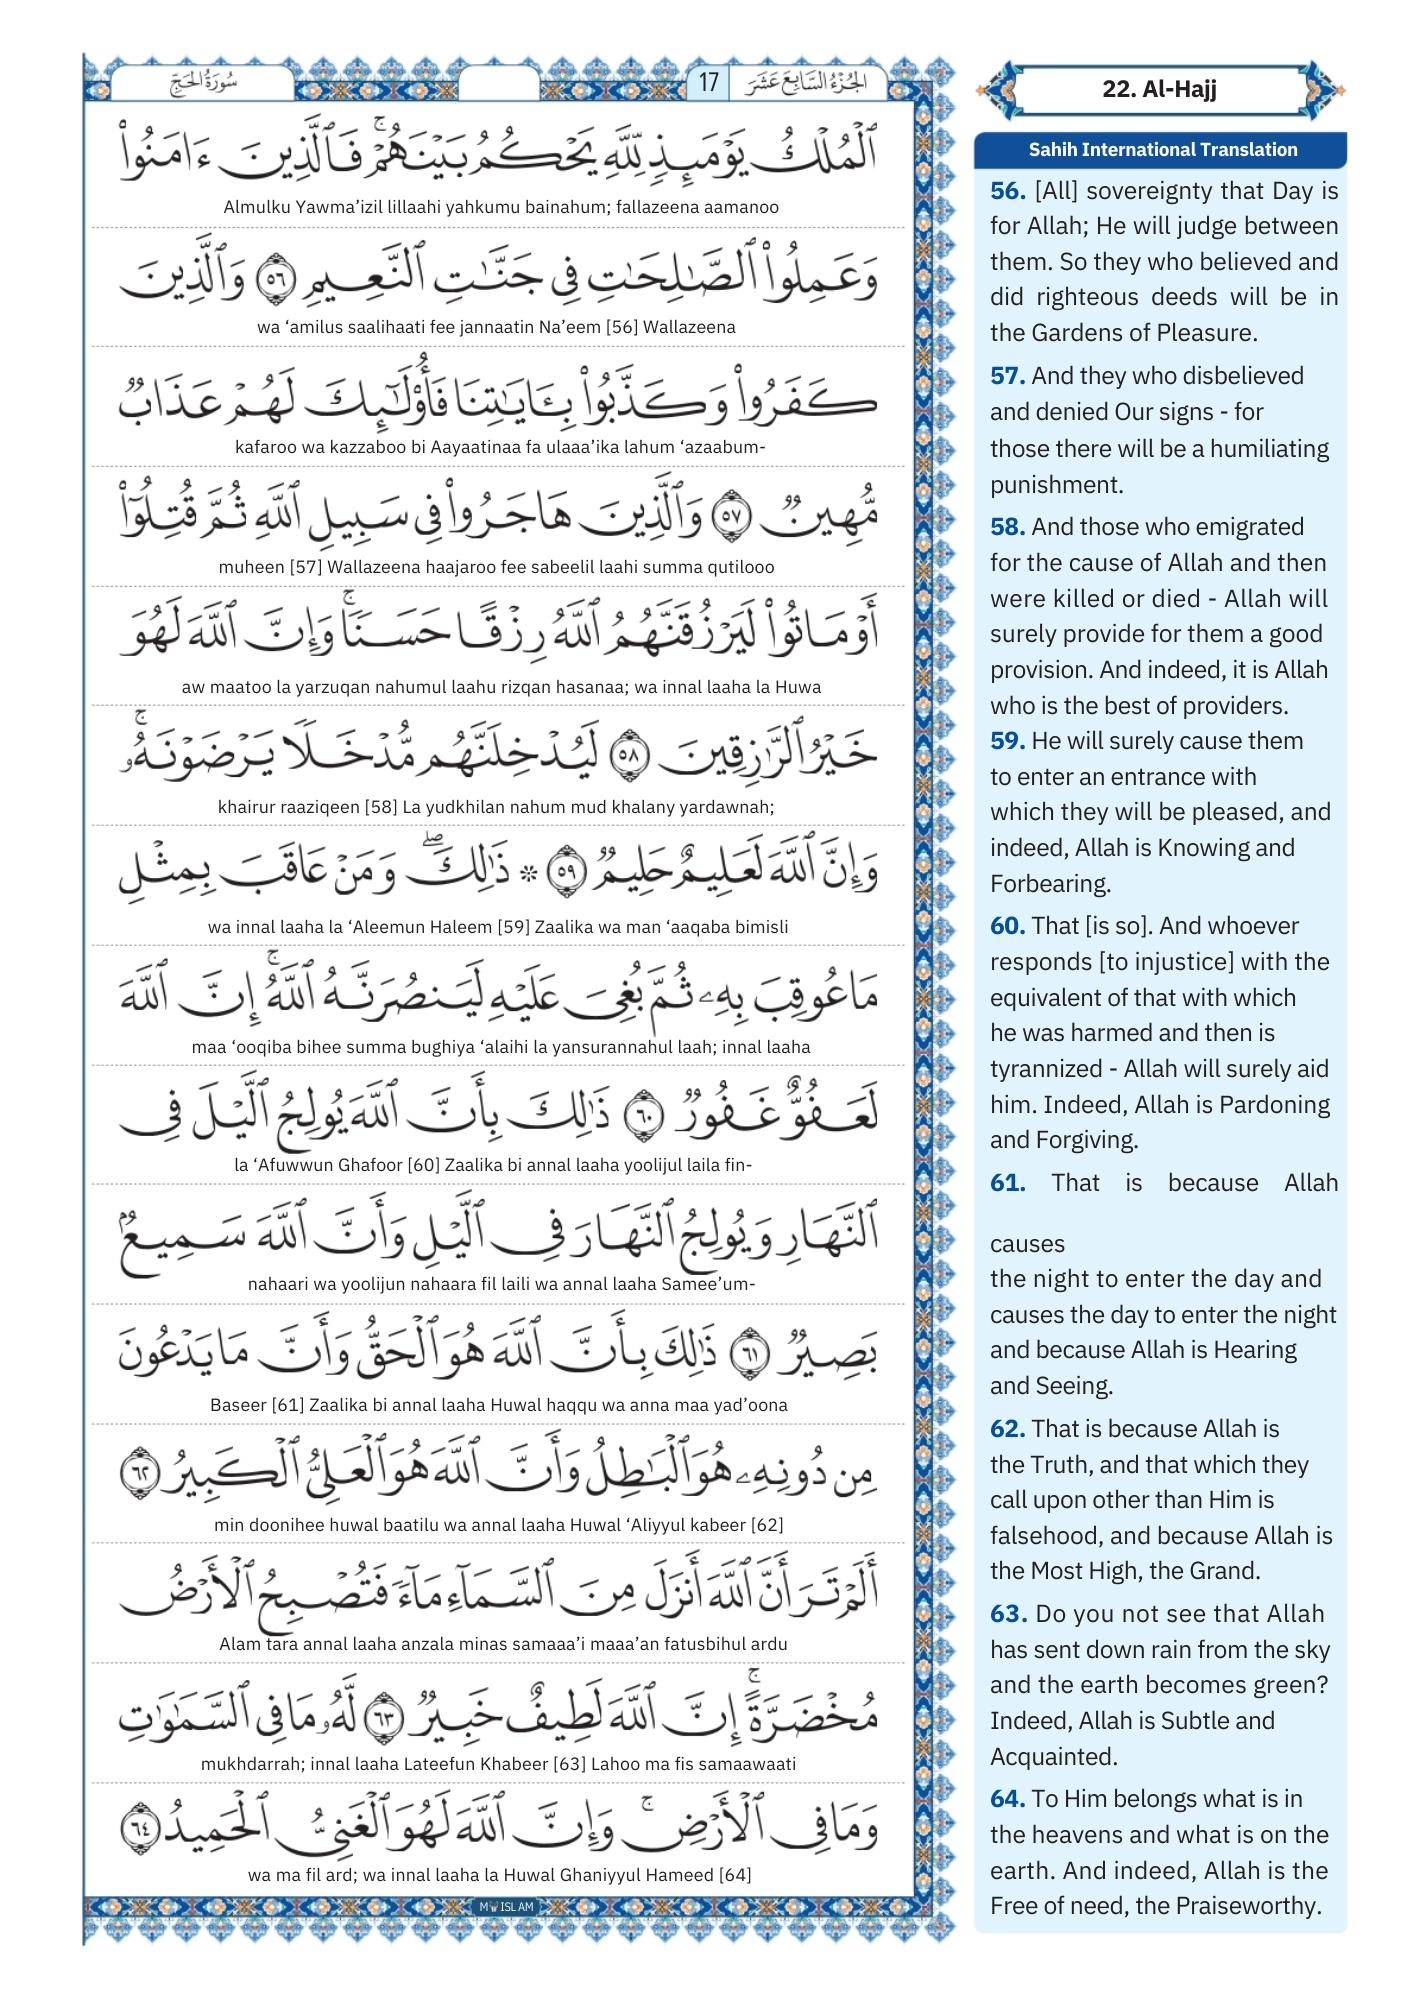 سُورَةُ الحَجِّ
17
الجُزْءُ السَّابِعَ عَشَرَ
ٱلْمُلْكُ يَوْمَئِذٍ لِّلَّهِ يَحْكُمُ بَيْنَهُمْ ۚ فَٱلَّذِينَ ءَامَنُوا۟
Almulku Yawma’izil lillaahi yahkumu bainahum; fallazeena aamanoo
وَعَمِلُوا۟ ٱلصَّـٰلِحَـٰتِ فِى جَنَّـٰتِ ٱلنَّعِيمِ ٥٦ وَٱلَّذِينَ
wa ‘amilus saalihaati fee jannaatin Na’eem [56] Wallazeena
كَفَرُوا۟ وَكَذَّبُوا۟ بِـَٔايَـٰتِنَا فَأُو۟لَـٰٓئِكَ لَهُمْ عَذَابٌ
kafaroo wa kazzaboo bi Aayaatinaa fa ulaaa’ika lahum ‘azaabum-
مُّهِينٌ ٥٧ وَٱلَّذِينَ هَاجَرُوا۟ فِى سَبِيلِ ٱللَّهِ ثُمَّ قُتِلُوٓا۟
muheen [57] Wallazeena haajaroo fee sabeelil laahi summa qutilooo
أَوْ مَاتُوا۟ لَيَرْزُقَنَّهُمُ ٱللَّهُ رِزْقًا حَسَنًا ۚ وَإِنَّ ٱللَّهَ لَهُوَ
aw maatoo la yarzuqan nahumul laahu rizqan hasanaa; wa innal laaha la Huwa
خَيْرُ ٱلرَّٰزِقِينَ ٥٨ لَيُدْخِلَنَّهُم مُّدْخَلًا يَرْضَوْنَهُۥ ۚ
khairur raaziqeen [58] La yudkhilan nahum mud khalany yardawnah;
وَإِنَّ ٱللَّهَ لَعَلِيمٌ حَلِيمٌ ٥٩ * ذَٰلِكَ ۖ وَمَنْ عَاقَبَ بِمِثْلِ
wa innal laaha la ‘Aleemun Haleem [59] Zaalika wa man ‘aaqaba bimisli
مَا عُوقِبَ بِهِۦ ثُمَّ بُغِىَ عَلَيْهِ لَيَنصُرَنَّهُ ٱللَّهُ ۚ إِنَّ ٱللَّهَ
maa ‘ooqiba bihee summa bughiya ‘alaihi la yansurannahul laah; innal laaha
لَعَفُوٌّ غَفُورٌ ٦٠ ذَٰلِكَ بِأَنَّ ٱللَّهَ يُولِجُ ٱلَّيْلَ فِى
la ‘Afuwwun Ghafoor [60] Zaalika bi annal laaha yoolijul laila fin-
ٱلنَّهَارِ وَيُولِجُ ٱلنَّهَارَ فِى ٱلَّيْلِ وَأَنَّ ٱللَّهَ سَمِيعٌۢ
nahaari wa yoolijun nahaara fil laili wa annal laaha Samee’um-
بَصِيرٌ ٦١ ذَٰلِكَ بِأَنَّ ٱللَّهَ هُوَ ٱلْحَقُّ وَأَنَّ مَا يَدْعُونَ
Baseer [61] Zaalika bi annal laaha Huwal haqqu wa anna maa yad’oona
مِن دُونِهِۦ هُوَ ٱلْبَـٰطِلُ وَأَنَّ ٱللَّهَ هُوَ ٱلْعَلِىُّ ٱلْكَبِيرُ ٦٢
min doonihee huwal baatilu wa annal laaha Huwal ‘Aliyyul kabeer [62]
أَلَمْ تَرَ أَنَّ ٱللَّهَ أَنزَلَ مِنَ ٱلسَّمَآءِ مَآءً فَتُصْبِحُ ٱلْأَرْضُ
Alam tara annal laaha anzala minas samaaa’i maaa’an fatusbihul ardu
مُخْضَرَّةً ۗ إِنَّ ٱللَّهَ لَطِيفٌ خَبِيرٌ ٦٣ لَّهُۥ مَا فِى ٱلسَّمَـٰوَٰتِ
mukhdarrah; innal laaha Lateefun Khabeer [63] Lahoo ma fis samaawaati
وَمَا فِى ٱلْأَرْضِ ۚ وَإِنَّ ٱللَّهَ لَهُوَ ٱلْغَنِىُّ ٱلْحَمِيدُ ٦٤
wa ma fil ard; wa innal laaha la Huwal Ghaniyyul Hameed [64]
22. Al-Hajj
Sahih International Translation
56. [All] sovereignty that Day is
for Allah; He will judge between
them. So they who believed and
did righteous deeds will be in
the Gardens of Pleasure.
57. And they who disbelieved
and denied Our signs - for
those there will be a humiliating
punishment.
58. And those who emigrated
for the cause of Allah and then
were killed or died - Allah will
surely provide for them a good
provision. And indeed, it is Allah
who is the best of providers.
59. He will surely cause them
to enter an entrance with
which they will be pleased, and
indeed, Allah is Knowing and
Forbearing.
60. That [is so]. And whoever
responds [to injustice] with the
equivalent of that with which
he was harmed and then is
tyrannized - Allah will surely aid
him. Indeed, Allah is Pardoning
and Forgiving.
61. That is because Allah
causes
the night to enter the day and
causes the day to enter the night
and because Allah is Hearing
and Seeing.
62. That is because Allah is
the Truth, and that which they
call upon other than Him is
falsehood, and because Allah is
the Most High, the Grand.
63. Do you not see that Allah
has sent down rain from the sky
and the earth becomes green?
Indeed, Allah is Subtle and
Acquainted.
64. To Him belongs what is in
the heavens and what is on the
earth. And indeed, Allah is the
Free of need, the Praiseworthy.